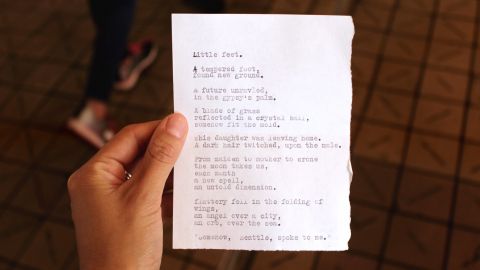 Little feet.
A tempered foot,
found new ground.
a future unravled,
in the gypsy's palm.
A blade of grass
reflected in a crystal ball,
somehow fit the mold.
this daughter was leaving home.
A dark hair twitched, upon the mole.
From maiden to mother to crone
the moon takes us,
each month
a new spell,
an untold dimension.
flattery fell in the folding of
wings,
an angel over a city,
an orb, over the sea.
"Somehow, Seattle, spoke to me."